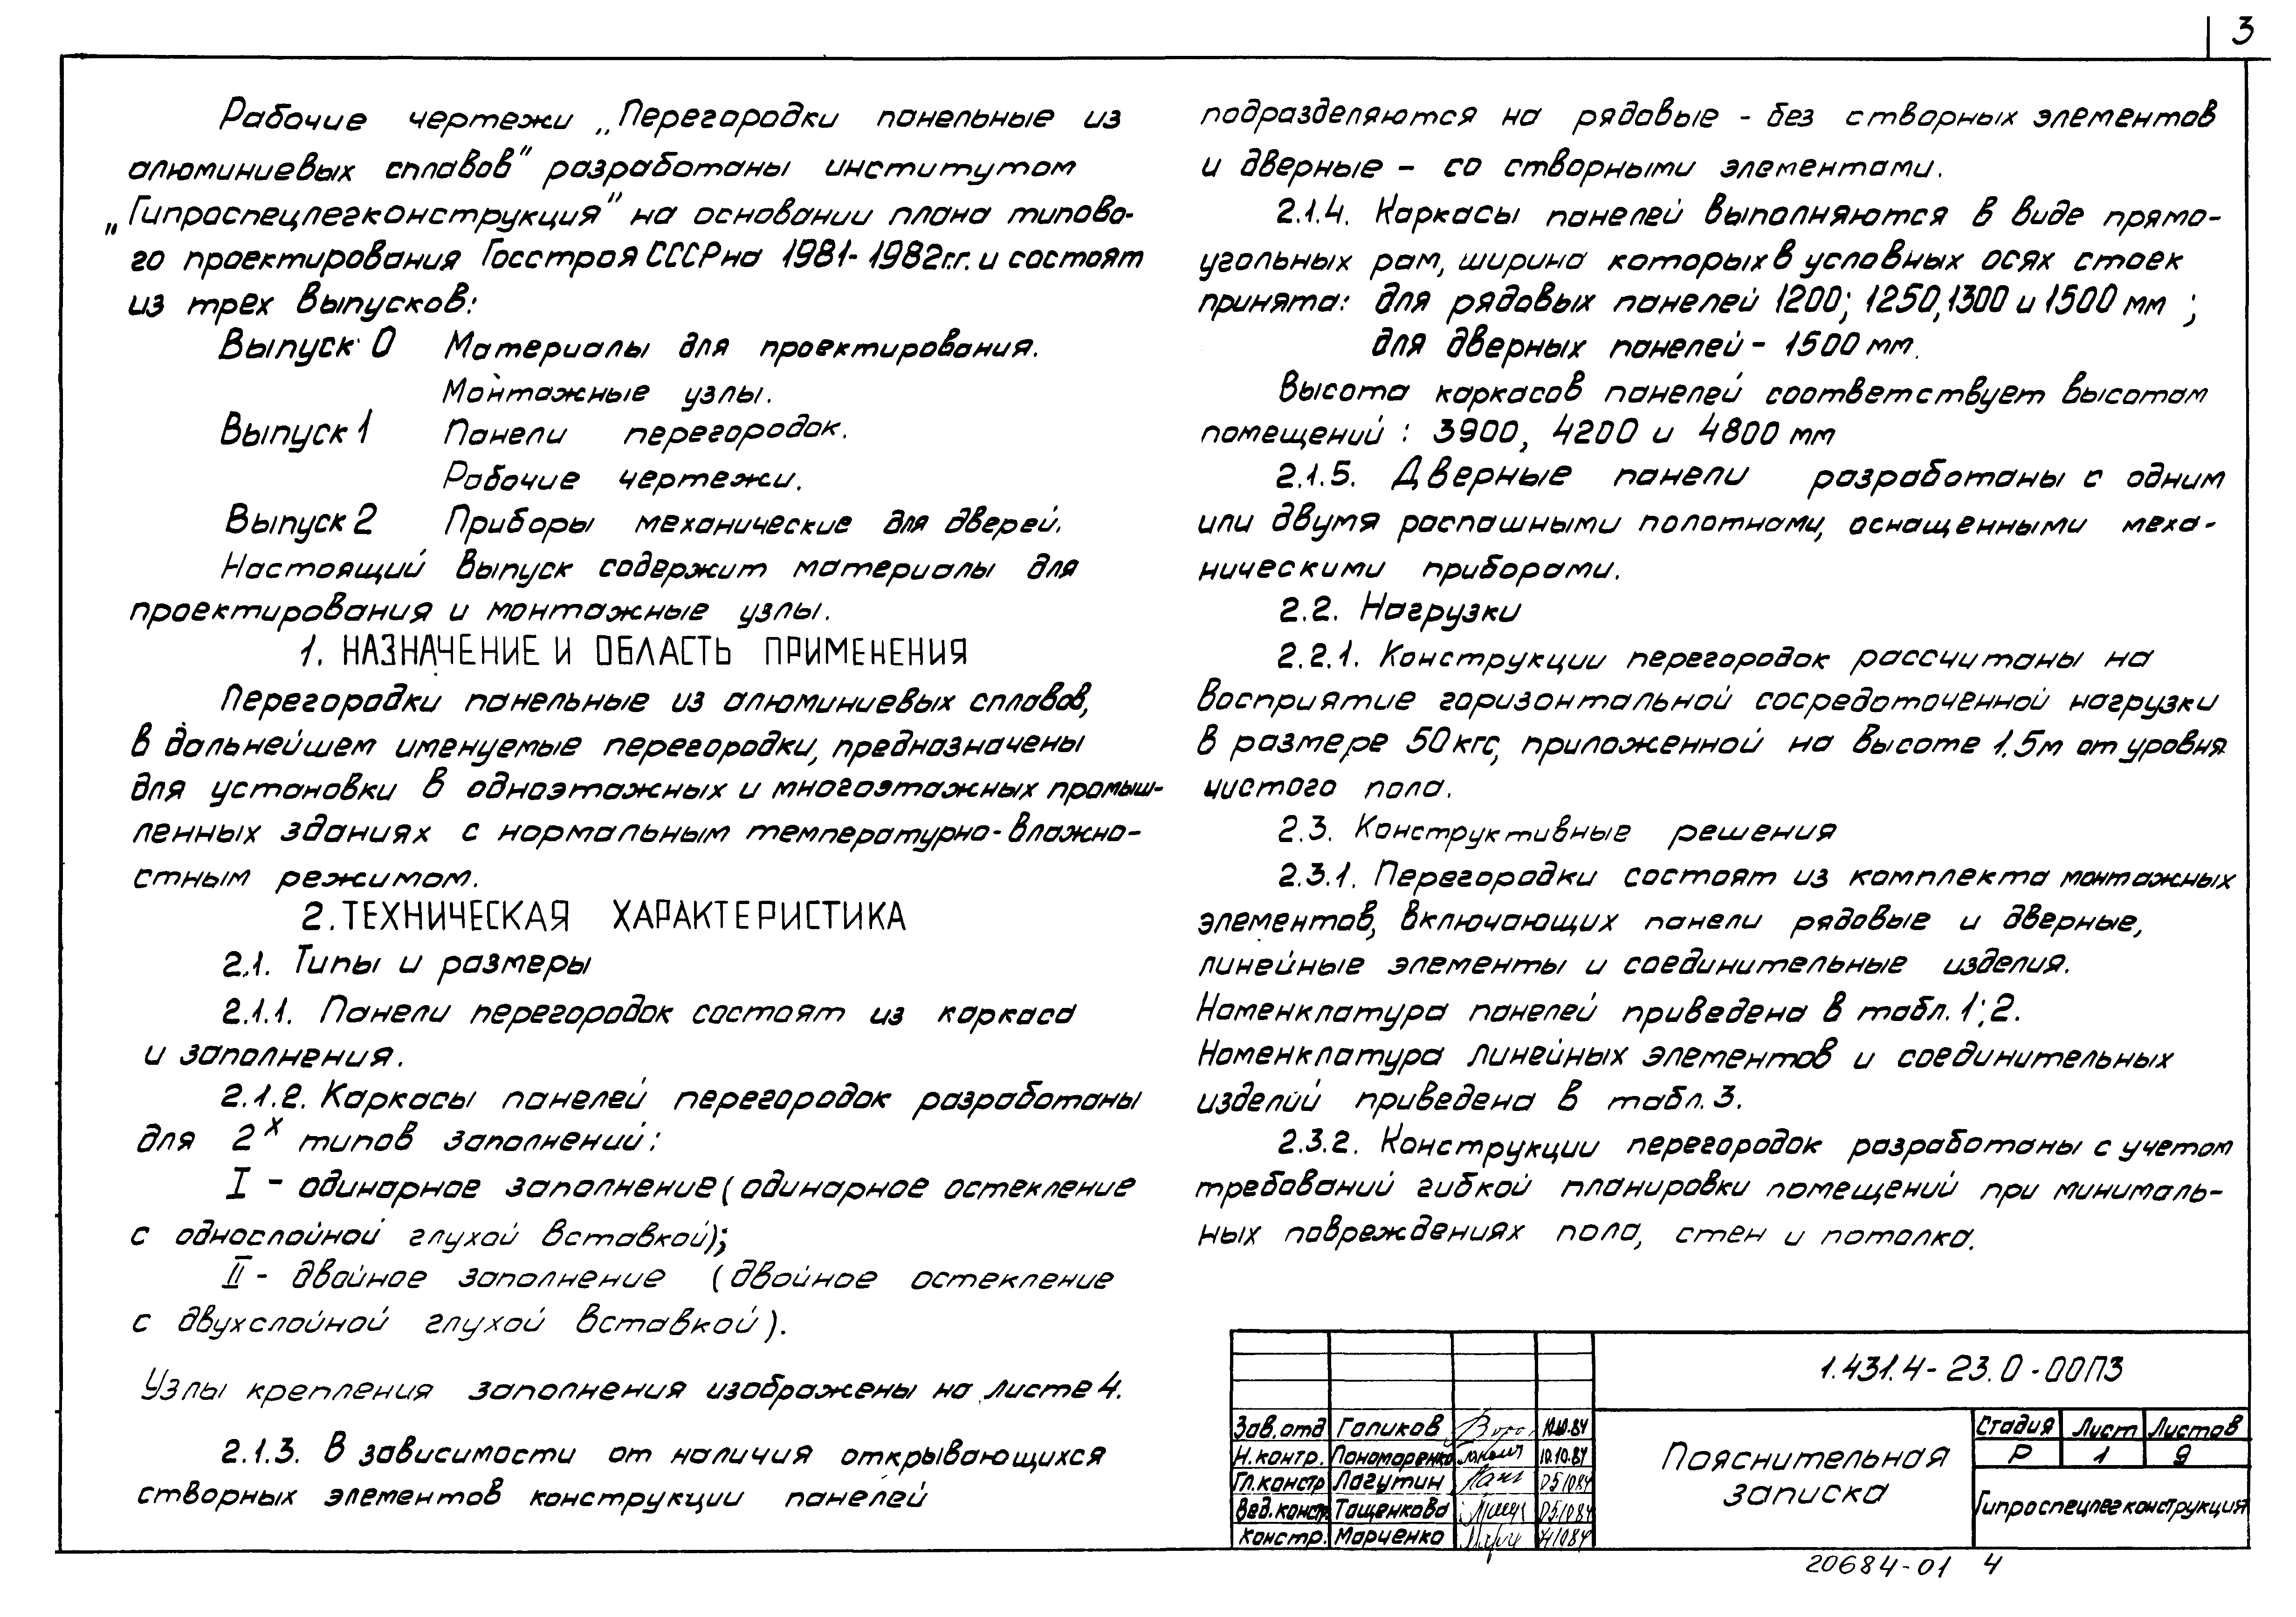 3
Рабочие чертежи „Перегородки панельные из
алюминиевых сплавов" разработаны институтом
„Гипроспецлегконструкция" на основании плана типово-
го проектирования Госстроя СССР на 1981-1982г.г. и состоят
из трех выпусков:
Выпуск 0 Материалы для проектирования.
Монтажные узлы.
Выпуск 1 Панели перегородок.
Рабочие чертежи.
Выпуск 2 Приборы механические для дверей.
Настоящий выпуск содержит материалы для
проектирования и монтажные узлы.
1. НАЗНАЧЕНИЕ И ОБЛАСТЬ ПРИМЕНЕНИЯ
Перегородки панельные из алюминиевых сплавов,
в дальнейшем именуемые перегородки, предназначены
для установки в одноэтажных и многоэтажных промыш-
ленных зданиях с нормальным температурно-влажно-
стным режимом.
2. ТЕХНИЧЕСКАЯ ХАРАКТЕРИСТИКА
2.1. Типы и размеры
2.1.1. Панели перегородок состоят из каркаса
и заполнения.
2.1.2. Каркасы панелей перегородок разработаны
для 2х типов заполнений:
I - одинарное заполнение (одинарное остекление
с однослойной глухой вставкой);
II - двойное заполнение (двойное остекление
с двухслойной глухой вставкой).
Узлы крепления заполнения изображены на листе 4.
2.1.3. В зависимости от наличия открывающихся
створных элементов конструкции панелей
подразделяются на рядовые - без створных элементов
и дверные - со створными элементами.
2.1.4. Каркасы панелей выполняются в виде прямо-
угольных рам, ширина которых в условных осях стоек
принята: для рядовых панелей 1200; 1250, 1300 и 1500 мм ;
для дверных панелей - 1500 мм.
Высота каркасов панелей соответствует высотам
помещений : 3900, 4200 и 4800 мм
2.1.5. Дверные панели разработаны с одним
или двумя распашными полотнами, оснащенными меха-
ническими приборами.
2.2. Нагрузки
2.2.1. Конструкции перегородок рассчитаны на
восприятие горизонтальной сосредоточенной нагрузки
в размере 50 кгс, приложенной на высоте 1.5м от уровня
чистого пола.
2.3. Конструктивные решения
2.3.1. Перегородки состоят из комплекта монтажных
элементов, включающих панели рядовые и дверные,
линейные элементы и соединительные изделия.
Номенклатура панелей приведена в табл. 1; 2.
Номенклатура линейных элементов и соединительных
изделий приведена в табл. 3.
2.3.2. Конструкции перегородок разработаны с учетом
требований гибкой планировки помещений при минималь-
ных повреждениях пола, стен и потолка.
1.431.4-23.0-00ПЗ
Зав.отд Галиков 10.10.84
Н.контр. Пономаренко 10.10.84
Гл.констр Лагутин 051084
Вед.констр. Тащенкова 05.1084
Констр. Марченко 41084
Пояснительная
записка
Стадия Лист Листов
Р 1 9
Гипроспецлегконструкция
20684-01 4